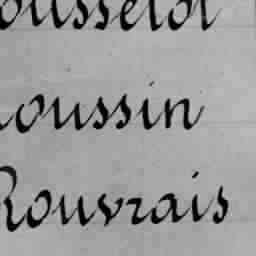 ousselot
oussin
Rouvrais